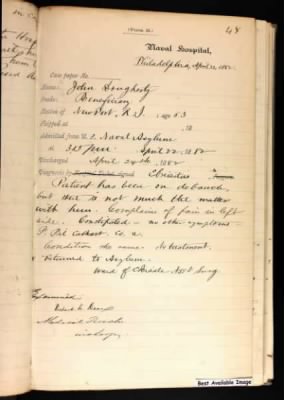 48
(Form H.)
Naval Hospital,
Philadelphia, April 22, 1882
Case paper No.
Name: John Dougherty
Rank: Beneficiary
Native of Newport, R. I. ; age 53
Shipped at , 18
Admitted from U. S. Naval Asylum
at , April 22, 1882
Discharged April 24th, 1882
Diagnosis by signed Ebrietas
Patient has been on debauch,
but there is not much the matter
with him. Complains of pain in left
side. Constipated - no other symptoms.
P. Pil Cathart. Co.
Condition the same. No treatment.
Returned to Asylum.
Asst Surg.
Examined
Medical
Best Available Image